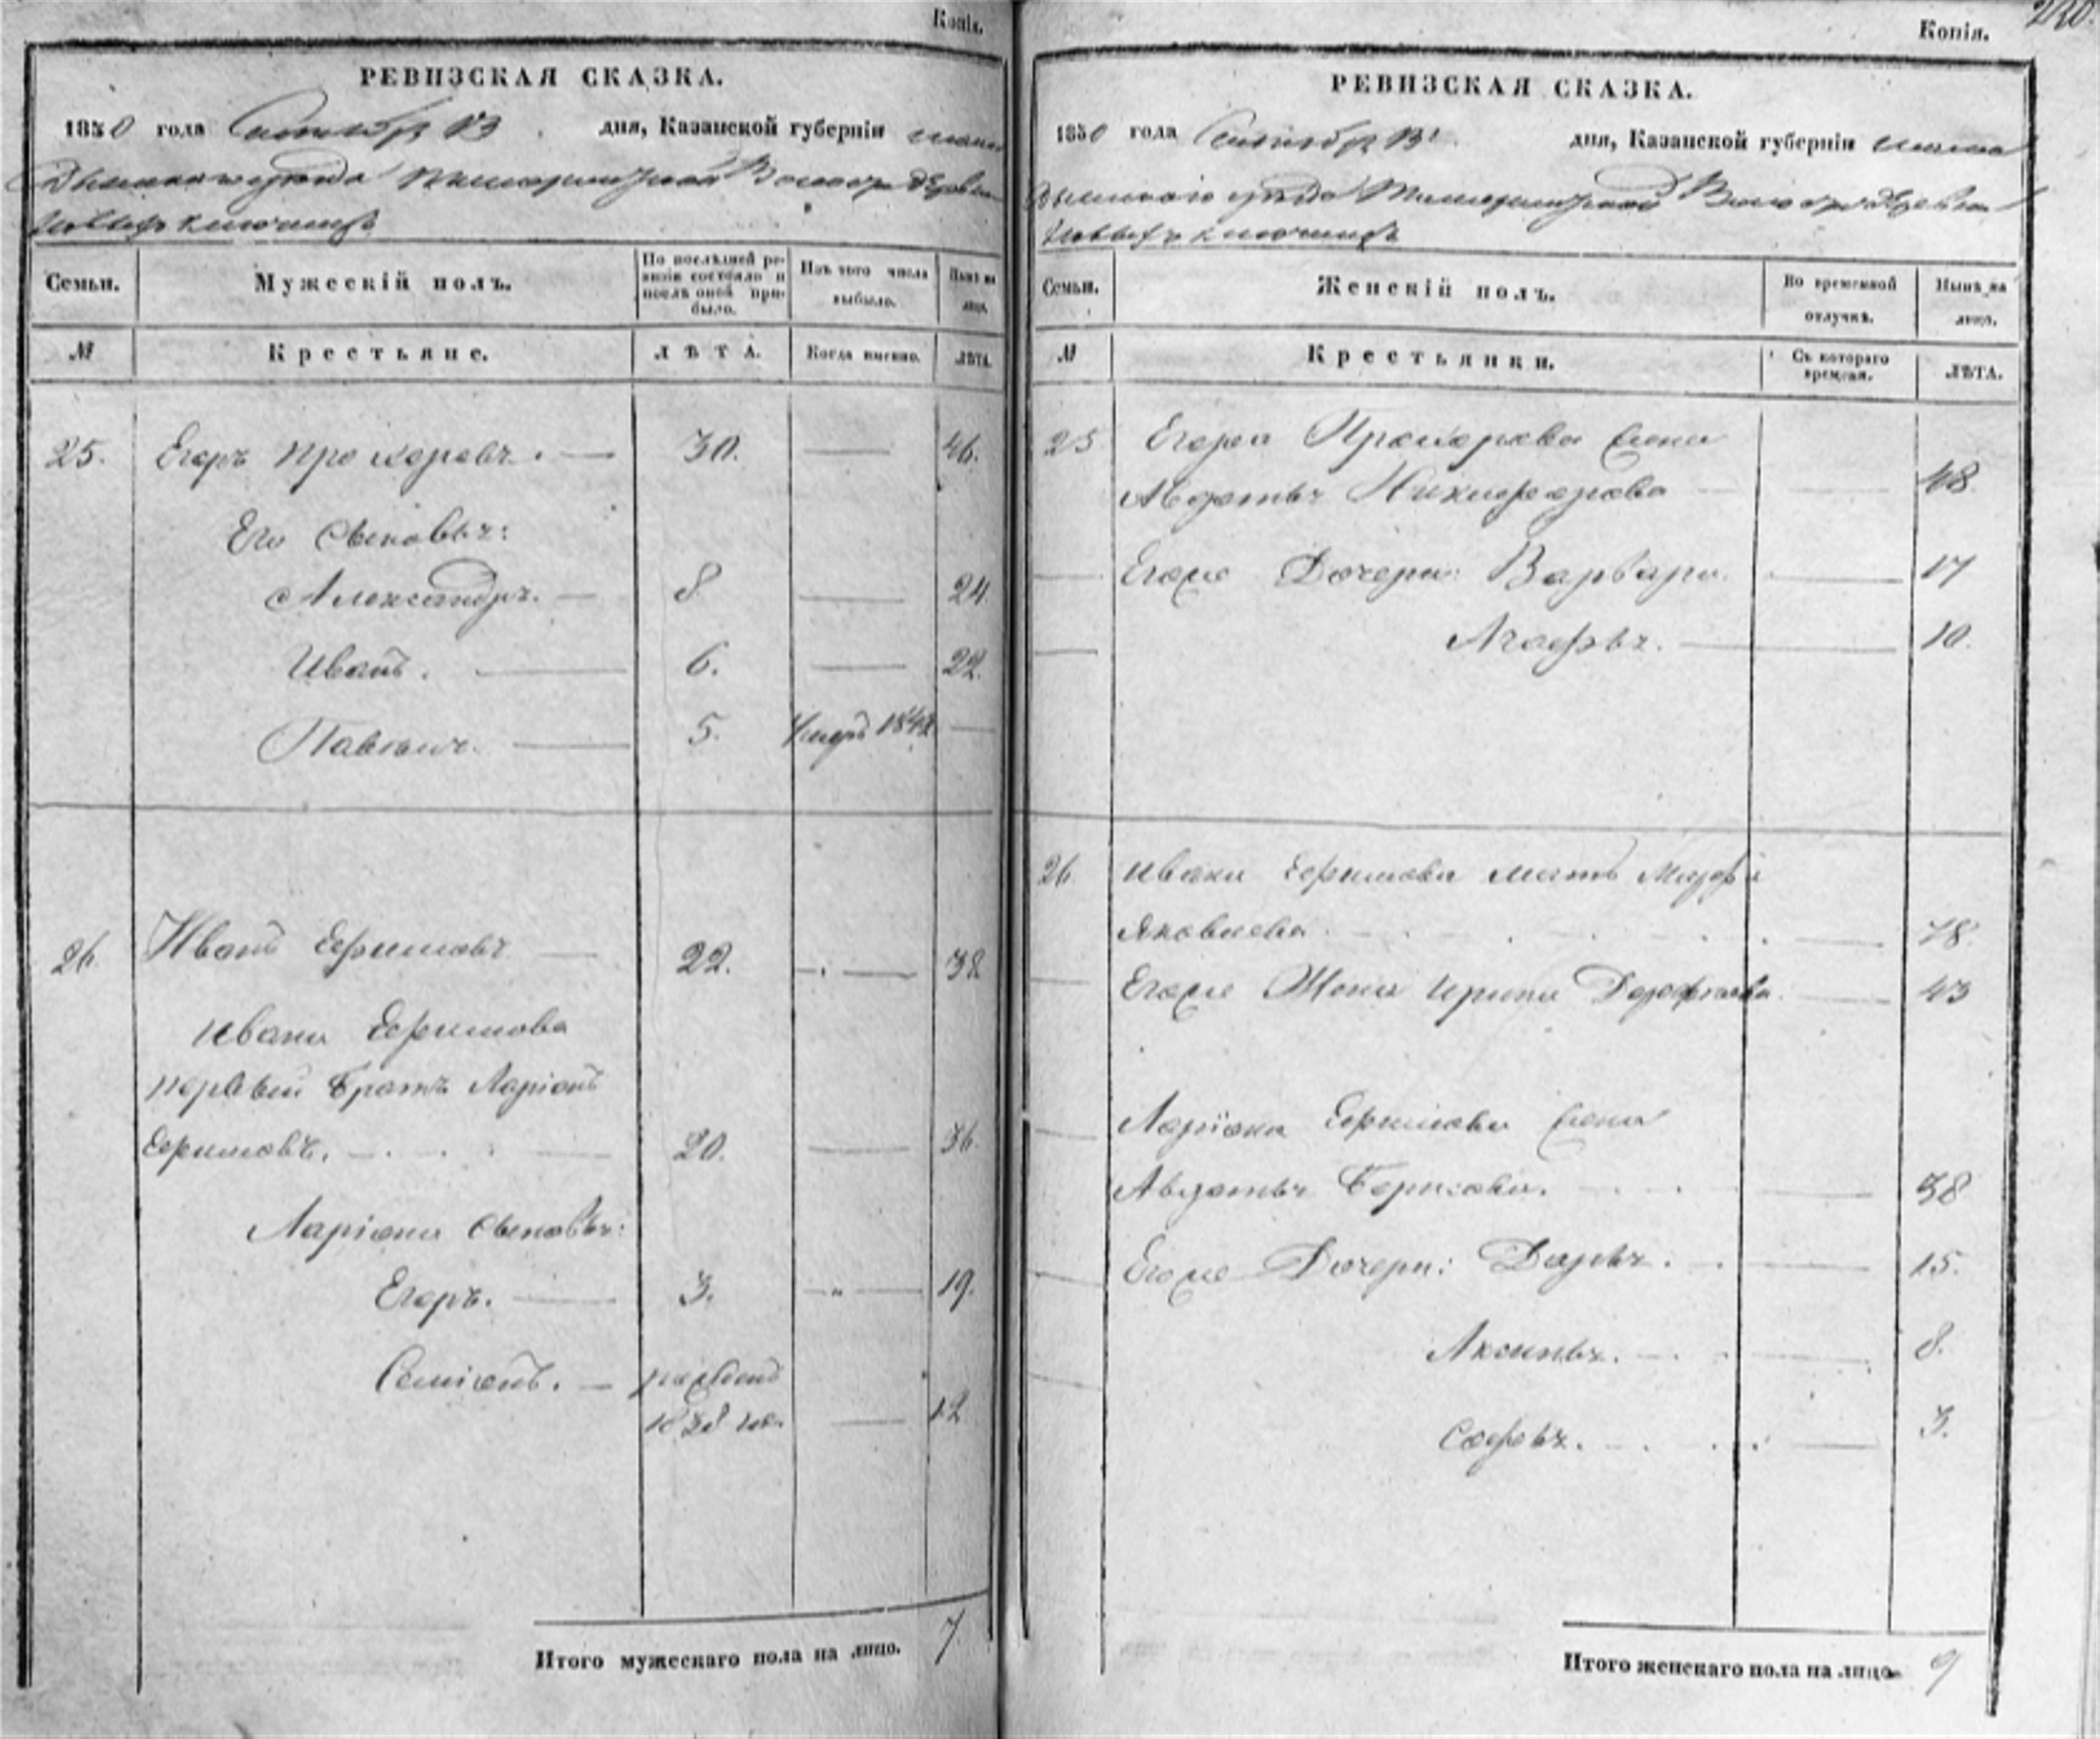 Копія.
РЕВИЗСКАЯ СКАЗКА.
1850 года Сентября 13 дня, Казанской губерніи
Волости
Новыхъ
Семьи. Мужескій полъ. По послѣдней ревизіи состояло и послѣ оной прибыло. Изъ того числа выбыло. Нынѣ на лицо.
№ Крестьяне. ЛѢТА. Когда именно. ЛѢТА.
25. Егоръ Прохоровъ. 30. 46.
Его Сыновья:
Александръ. 8 24.
Иванъ. 6. 22.
Павелъ. 5. Умеръ
26 Иванъ Ефимовъ 22. 38
Ивана Ефимова
первый Братъ Ларіонъ
Ефимовъ. 20. 36.
Ларіона Сыновья:
Егоръ. 3. 19.
Семіонъ. рожденъ
1838 12
Итого мужескаго пола на лицо. 7
Копія.
РЕВИЗСКАЯ СКАЗКА.
1850 года Сентября 13 дня, Казанской губерніи
уѣзда Волости
Новыхъ
Семьи. Женскій полъ. Во временной отлучкѣ. Нынѣ на лицо.
№ Крестьянки. Съ котораго времени. ЛѢТА.
25 Егора Прохорова Жена
Авдотья Никифорова 48
Егоже Дочери: Варвара. 17
Агафья. 10.
26 Ивана Ефимова мать Марфа
Яковлева 78
Егоже Жена Ирина Дорофеева 43
Ларіона Ефимова Жена
Авдотья Борисова. 38
Егоже Дочери: Дарья. 15.
Аксинья. 8.
Софья. 3.
Итого женскаго пола на лицо 9